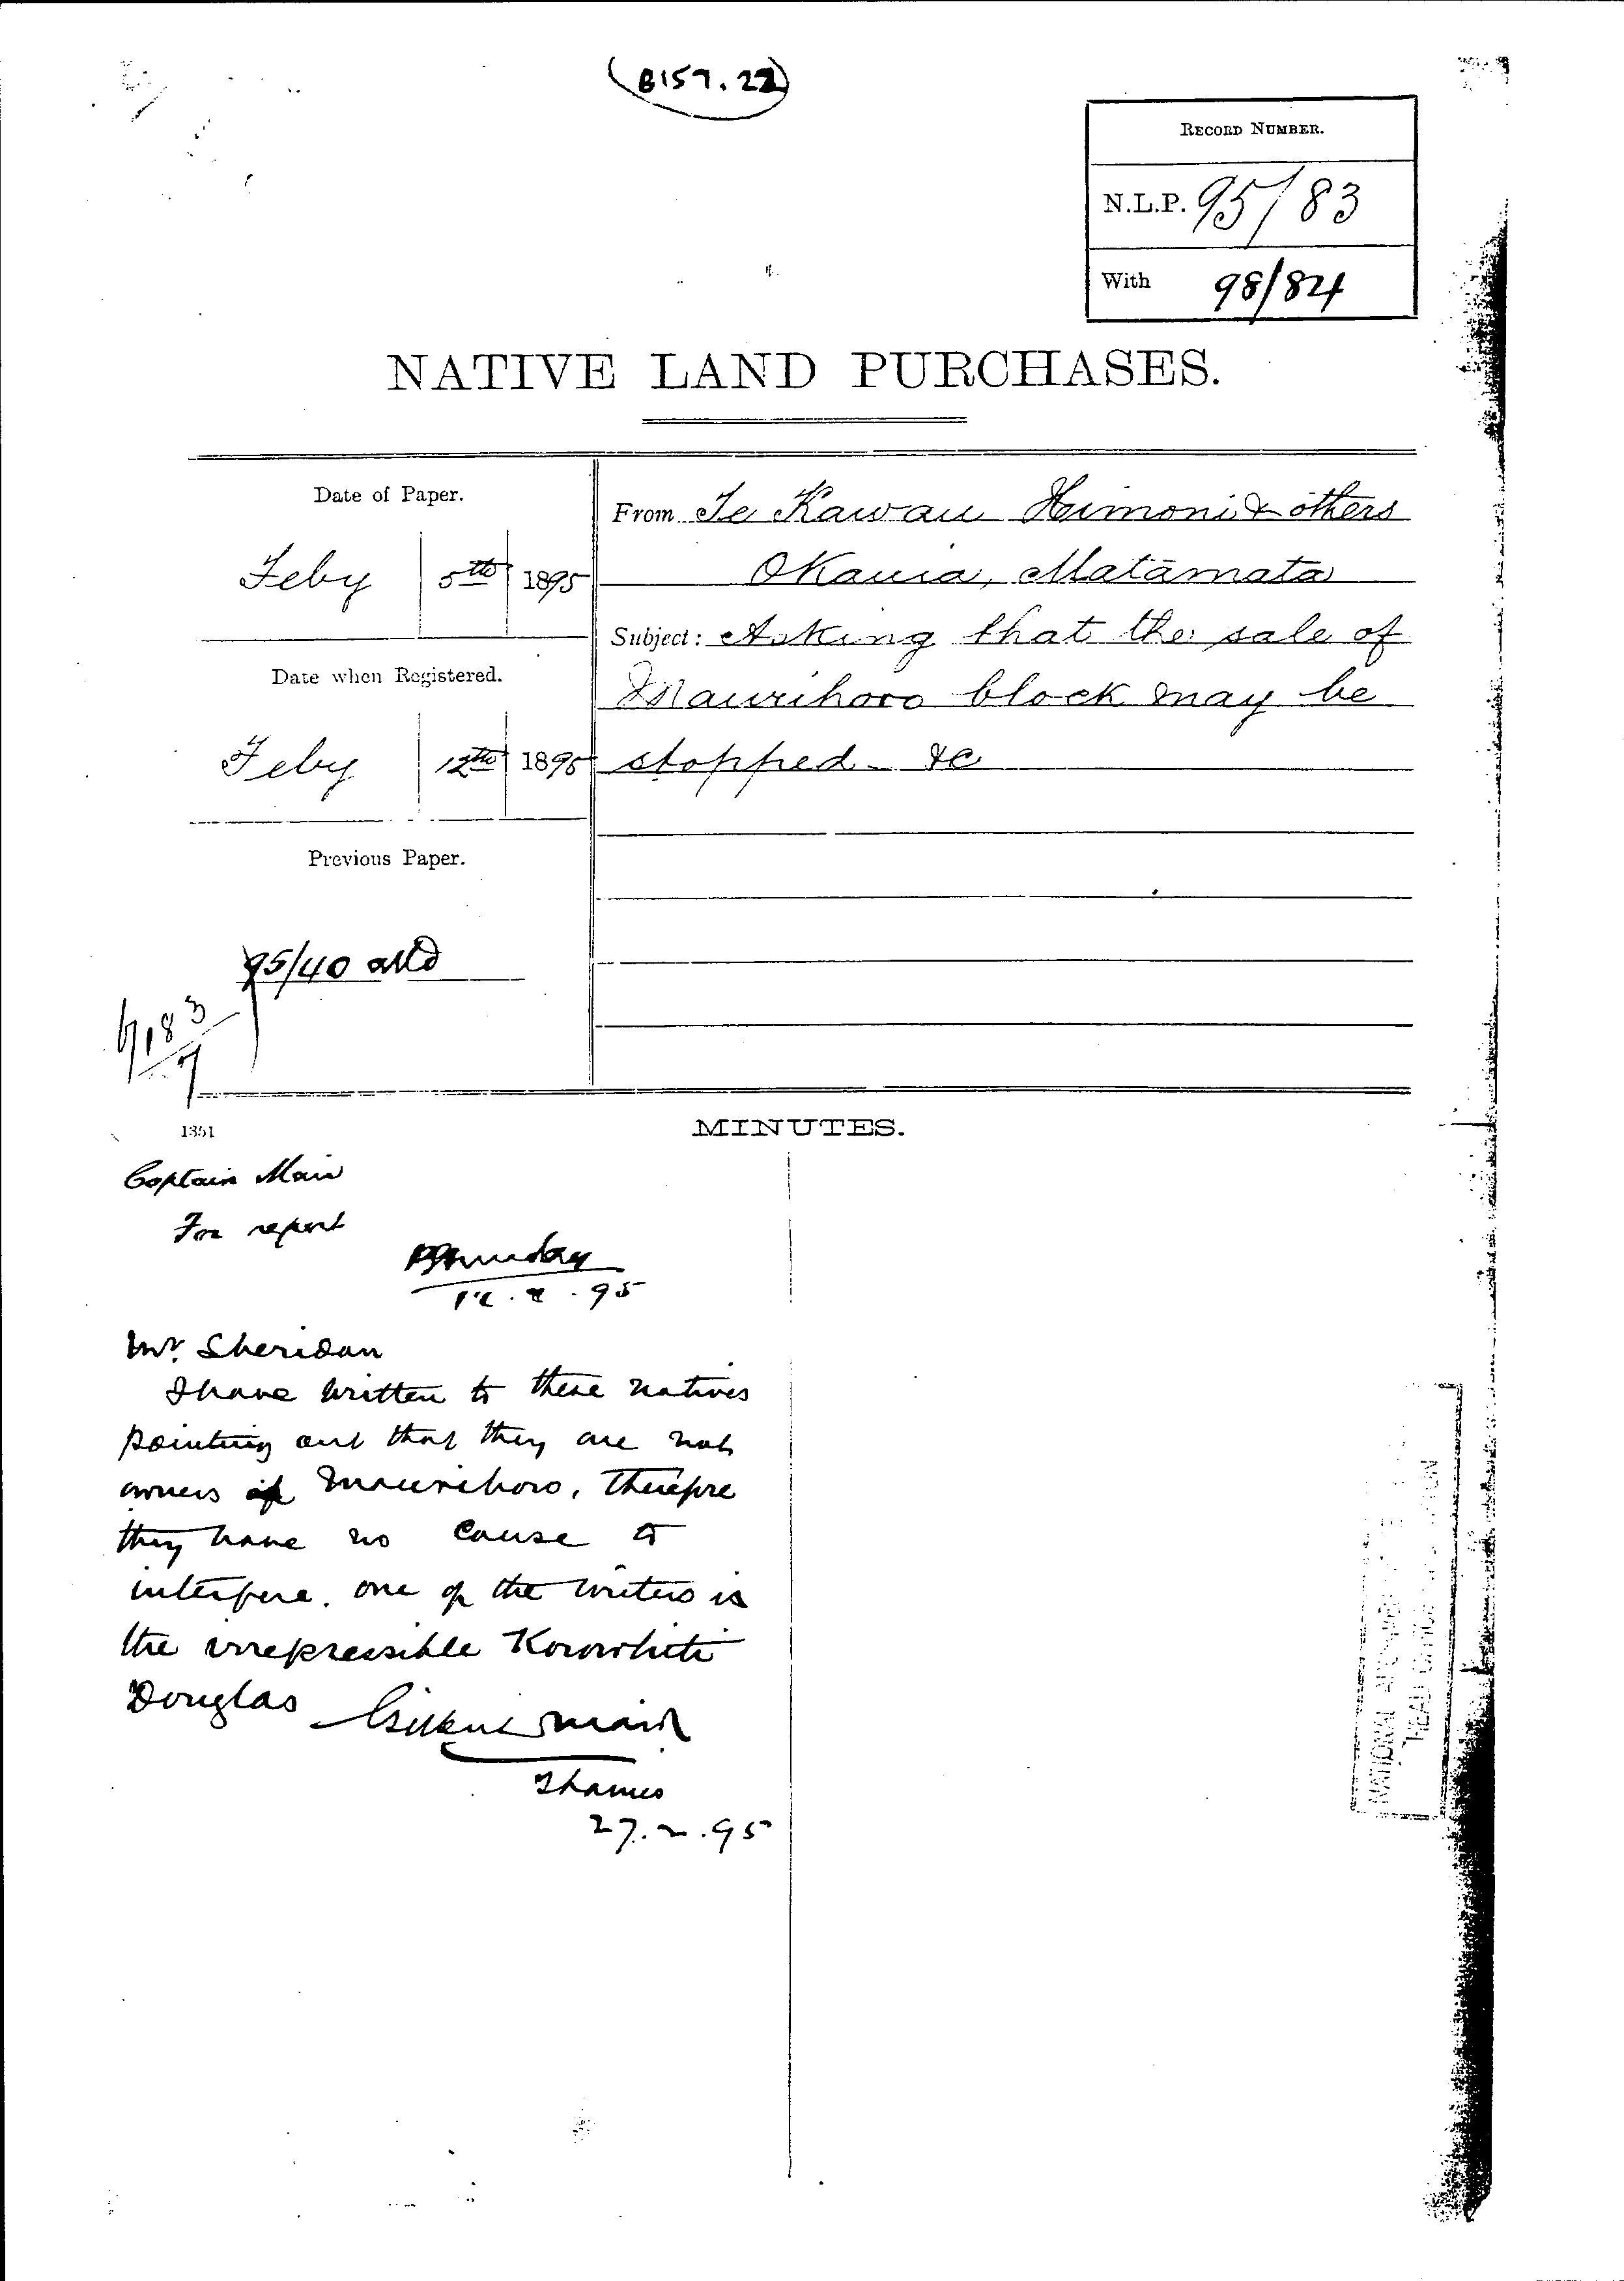 B157.22
RECORD NUMBER.
N.L.P. 95/83
With 98/84
NATIVE LAND PURCHASES.
Date of Paper.
Feby 5th 1895
Date when Registered.
Feby 12th 1895
Previous Paper.
95/40
From Te Kawau Himoni & others
Okauia, Matamata
Subject: Asking that the sale of
Maurihoro block may be
stopped - &c
1351
MINUTES.
Captain Mair
For report
.95
Mr. Sheridan
I have written to these natives
pointing out that they are not
owners of Maurihoro, therefore
they have no cause to
interfere. One of the writers is
the irrepressible Korowhiti
Douglas
Gilbert Mair
Thames
27.2.95
NATIONAL
HEAD OFFICE